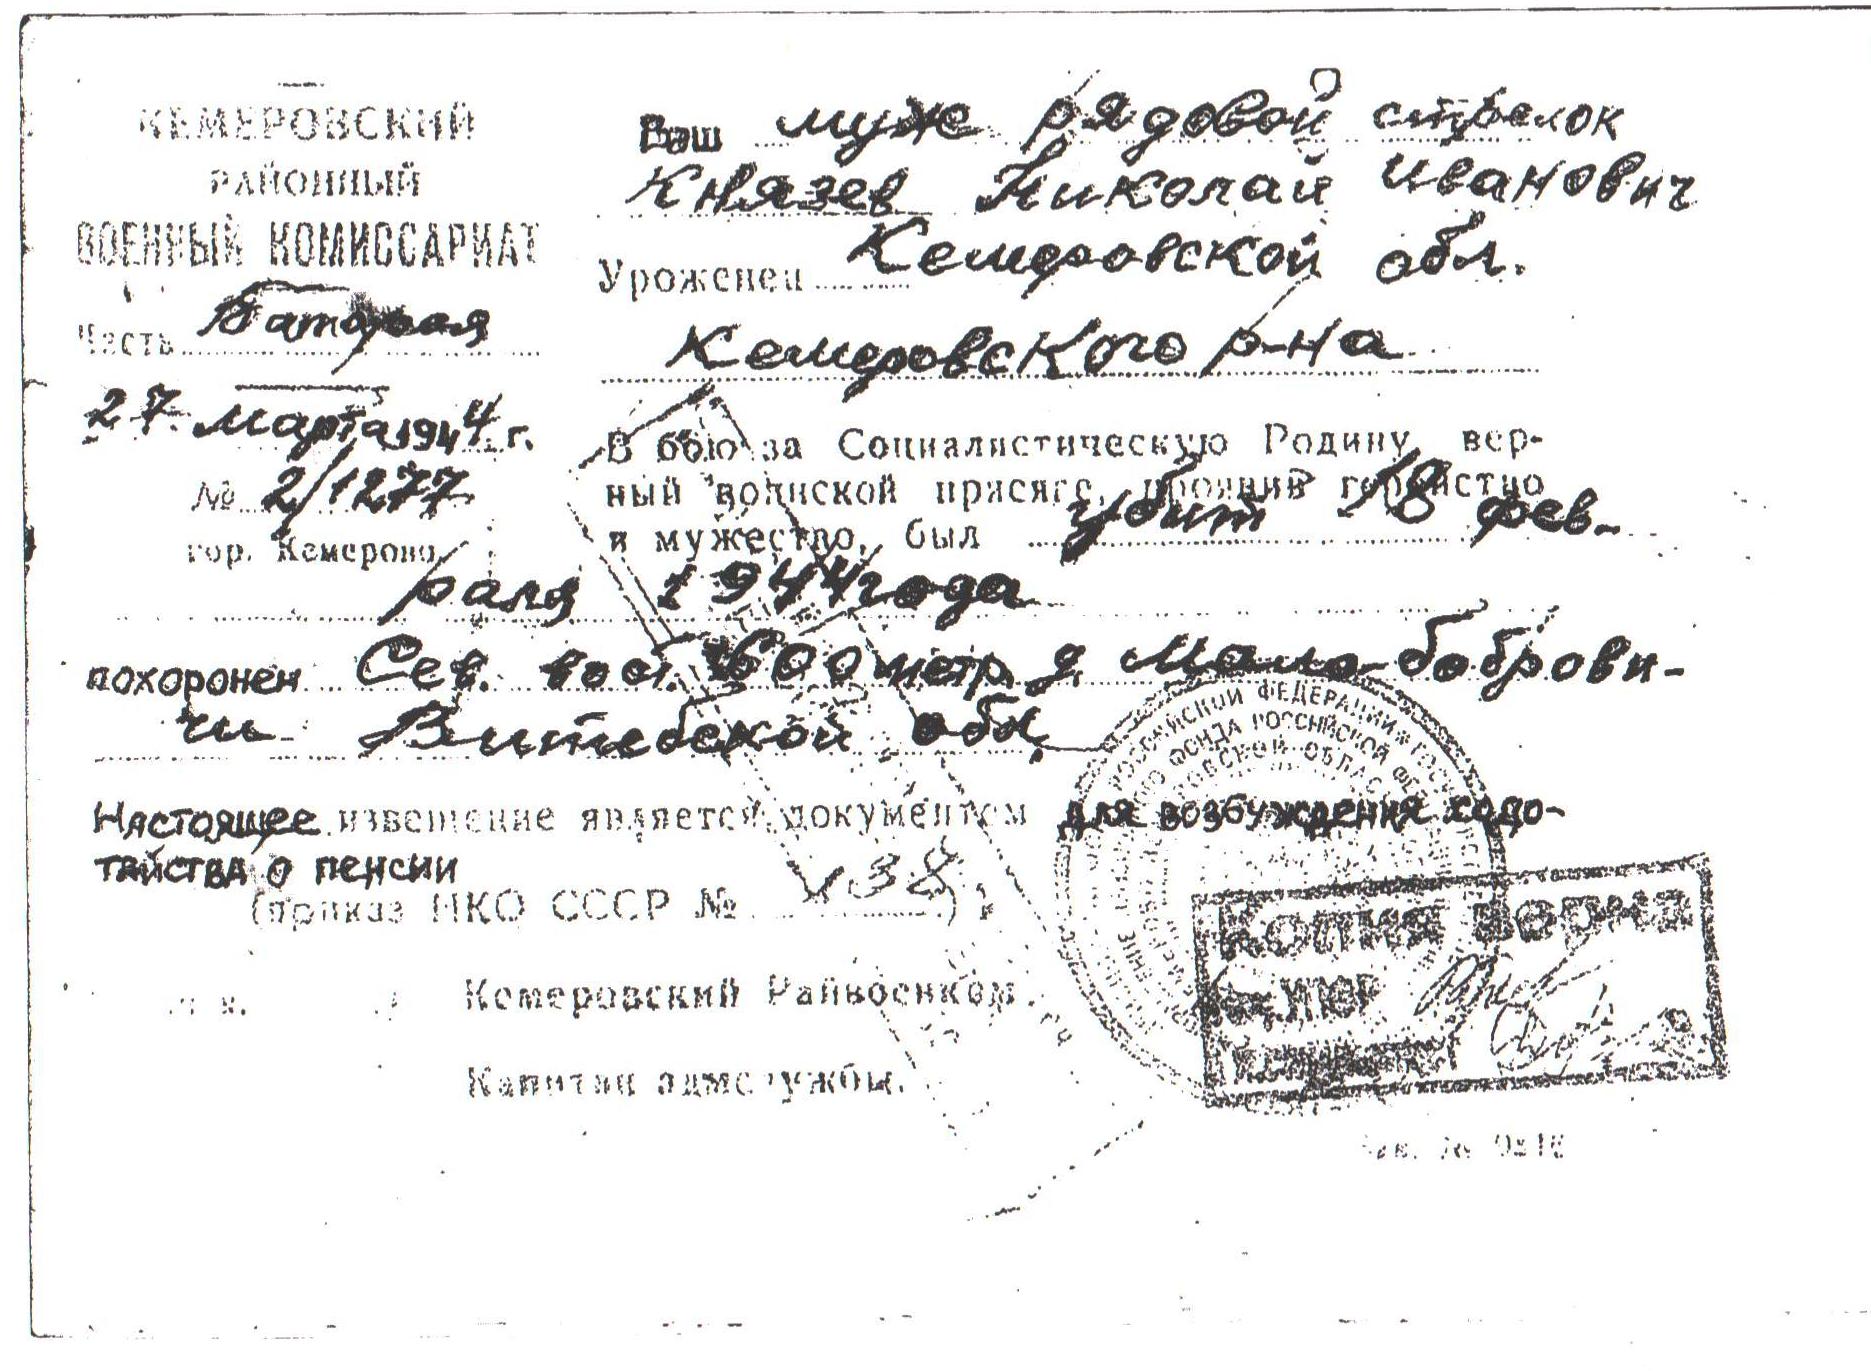 КЕМЕРОВСКИЙ
РАЙОННЫЙ
ВОЕННЫЙ КОМИССАРИАТ
Часть
27 марта 1944 г.
№ 2/1277
гор. Кемерово
Ваш муж рядовой стрелок
Князев Николай Иванович
Уроженец Кемеровской обл.
Кемеровского р-на
В бою за Социалистическую Родину, вер-
ный воинской присяге, проявив геройство
и мужество, был убит 18 фев-
раля 1944 года
похоронен Сев. вост. 1600 метр. д. Мало-боброви-
чи Витебской обл.
Настоящее извещение является документом для возбуждения ходо-
тайства о пенсии
(приказ НКО СССР № 138).
Кемеровский Райвоенком
Капитан адмслужбы.
РОССИЙСКОЙ ФЕДЕРАЦИИ
ФОНДА РОССИЙСКОЙ
ОБЛАС
Копия верна